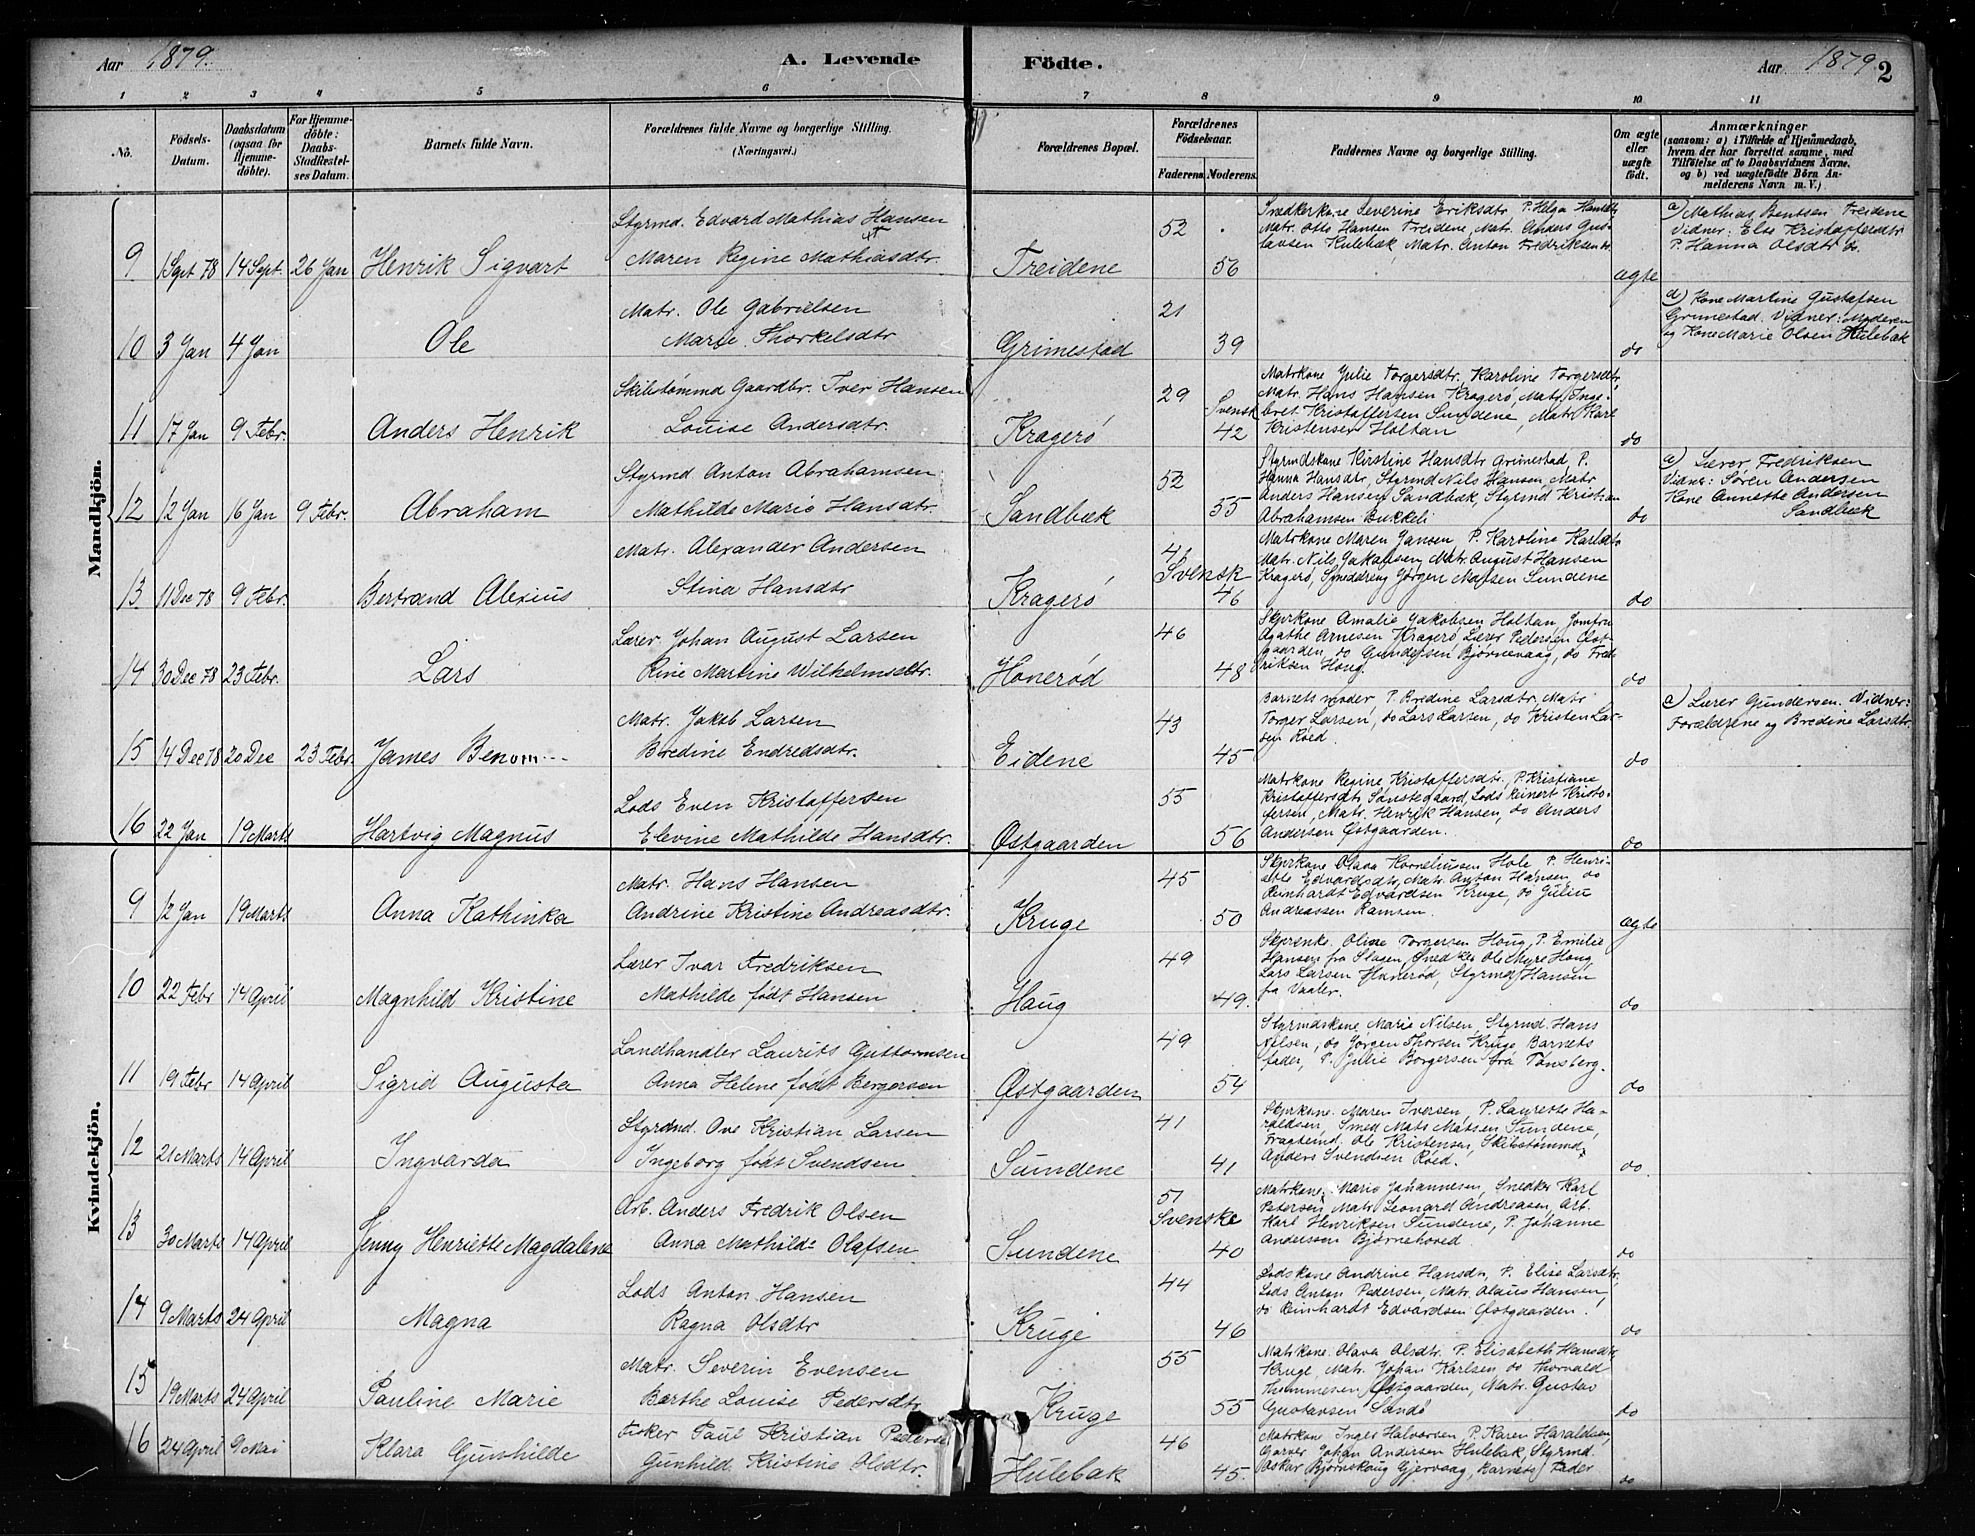 Aar 1879. A. Levende Födte. Aar 1879. 2
1 2 3 4 5 6 7 8 9 10 11
No. Födsels-Datum. Daabsdatum (ogsaa for Hjemme-döbte). For Hjemme-döbte: Daabs-Stadfæstel-ses Datum. Barnets fulde Navn. Forældrenes fulde Navne og borgerlige Stilling. (Næringsvei.) Forældrenes Bopæl. Forældrenes Födselsaar. Faderens. Moderens. Faddernes Navne og borgerlige Stilling. Om ægte eller uægte födt. Anmærkninger (saasom: a) i Tilfælde af Hjemmedaab, hvem der har forrettet samme, med Tilföielse af to Daabsvidners Navne, og b) ved uægtefödte Börn An-melderens Navn m. V.)
Mandkjön.
9 1 Sept 78 14 Sept. 26 Jan Henrik Sigvart
Styrmd. Edvard Mathias Hansen
Maren Regine Mathiasdtr.
Treidene 52 56
Snedkerkone Severine Eriksdtr. P. Helga Hansdtr
Matr. Otto Hansen Treidene, Matr. Anders Gus-
tavsen Hulebæk, Matr. Anton Fredriksen do
ægte
a) Mathias Bentsen Treidene
Vidner: Else Kristoffersdtr
P. Hanna Olsdtr do.
10 3 Jan 4 Jan Ole
Matr. Ole Gabrielsen
Marie Thorkelsdtr
Grimestad 21 39 do
a) Kone Martine Gustafsen
Grimestad. Vidner: Moderen
og Kone Marie Olsen Hulebæk
11 17 Jan 9 Febr. Anders Henrik
Skibstømmd Gaardbr. Iver Hansen
Louise Andersdtr.
Kragerö 29 Svensk 42
Matrkone Julie Torgersdtr, Karoline Torgersdtr,
Matr. Hans Hansen Kragerø, Matr. Inge-
bret Kristoffersen Sundene, Matr. Karl
Kristensen Holtan
do
12 12 Jan 16 Jan 9 Febr. Abraham
Styrmd Anton Abrahamsen
Mathilde Marie Hansdtr.
Sandbæk 52 55
Styrmdskone Kirstine Hansdtr Grimestad, P.
Hanna Hansdtr, Styrmd Nils Hansen, Matr
Anders Hansen Sandbæk, Styrmd Kristian
Abrahamsen Bukkeli
do
a) Lærer Fredriksen
Vidner: Søren Andersen
Kone Annette Andersen
Sandbæk
13 11 Dec 78 9 Febr. Bertrand Alexius
Matr. Alexander Andersen
Stina Hansdtr
Kragerö 41 Svensk 46
Matrkone Maren Jansen, P. Karoline Karlsdtr
Matr. Nils Jakobsen, Matr. August Hansen
Kragerø, Smeddreng Jørgen Matsen Sundene
do
14 30 Dec 78 23 Febr. Lars
Lærer Johan August Larsen
Rine Martine Wilhelmsdtr.
Honerød 46 48
Skprkone Amalie Jakobsen Holtan, Jomfru
Agathe Arnesen Kragerø Lærer Pedersen Øst-
gaarden, do Gundersen Bjørnevaag, do Fred-
riksen Houg.
do
15 14 Dec 78 20 Dec 23 Febr. James Benom...
Matr. Jakob Larsen
Bredine Endredsdtr.
Eidene 43 45
Barnets moder, P. Bredine Larsdtr, Matr
Torger Larsen, do Lars Larsen, do Kristen Lar-
sen Roed.
do
a) Lærer Gundersen. Vidner:
Forældrene og Bredine Larsdtr.
16 22 Jan 19 Marts Hartvig Magnus
Lods Even Kristoffersen
Elevine Mathilde Hansdtr.
Østgaarden 55 56
Matrkone Regine Kristoffersdtr, P. Kristiane
Kristoffersdtr Sønstegaard, Lods Reinert Kristo-
fersen, Matr. Henrik Hansen, do Anders
Andersen Østgaarden.
do
Kvindekjön.
9 12 Jan 19 Marts Anna Kathinka
Matr. Hans Hansen
Andrine Kristine Andreasdtr.
Kruge 45 50
Skprkone Olava Korneliussen Hole, P. Henri-
ette Edvardsdtr, Matr. Anton Hansen, do
Reinhardt Edvardsen Kruge, do Julius
Andreassen Ramsen.
ægte
10 22 Febr 14 April Magnhild Kristine
Lærer Ivar Fredriksen
Mathilde født Hansen
Haug 49 49.
Skprenke. Oline Torgersen Houg, P. Emilie
Hansen fra Slagen, Snedker Ole Myre Houg,
Lars Larsen Honerød, Styrmd Hansen
fra Vaaler.
do
11 19 Febr 14 April Sigrid Augusta
Landhandler Laurits Guttormsen
Anna Helene født Bergersen
Østgaarden 49 54
Styrmdskone Marie Nilsen, Styrmd. Hans
Nilsen, do Jørgen Thorsen Kruge Barnets
fader, P. Julie Borgersen fra Tønsberg.
do
12 21 Marts 14 April Ingvarda
Styrmd. Ove Kristian Larsen
Ingeborg født Svendsen
Sundene 41 41
Skprkone. Maren Iversen, P. Laurette Ha-
raldsen, Smed Mats Matsen Sundene,
Fragtemd. Ole Kristensen, Skibstømmd
Anders Svendsen Røed.
do
13 30 Marts 14 April Jenny Henriette Magdalene
Arb. Anders Fredrik Olsen
Anna Mathilde Olafsen
Sundene 51 Svenske 40
Matrkone Marie Johannesen, Snedker Karl
Petersen, Matr. Leonard Andreasen, Arb.
Karl Henriksen Sundene, P. Johanne
Andersen Bjørnehoved.
do
14 9 Marts 24 April Magna
Lods Anton Hansen
Ragna Olsdtr
Kruge 44 46
Lodskone Andrine Hansdtr, P. Elise Larsdtr,
Lods Anton Pedersen, Matr. Olaus Hansen,
do Reinhardt Edvardsen Østgaarden.
do
15 19 Marts 24 April Pauline Marie
Matr. Severin Evensen
Barthe Louise Pedersdtr
Kruge 55 55
Matrkone Olava Olsdtr. P. Elisabeth Hansdtr,
Kruge, Matr. Johan Karlsen do Thorvald
Thommesen Østgaarden, Matr. Gustav
Gustavsen Sandø
do
16 24 April 9 Mai Klara Gunhilde
Fisker Paul Kristian Peders
Gunhild Kristine Olsdtr.
Hulebak 46 45.
Matrkone Inger Halvorsen, P. Karen Haraldsen,
Garver Johan Andersen Hulebak, Styrmd.
Oskar Bjørnskaug Gjervaag, Barnets Fader
do